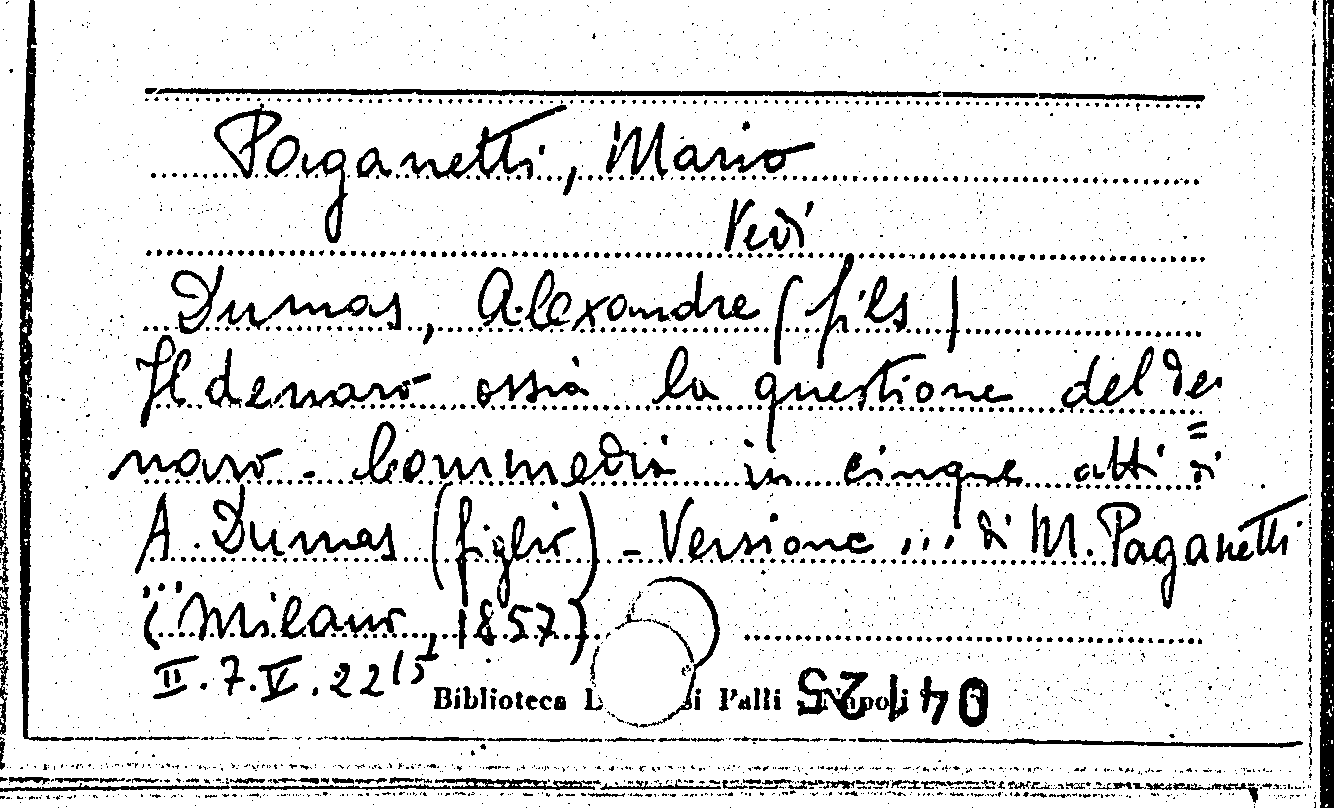 Paganetti, Mario
Vedi
Dumas, Alexandre (fils)
Il denaro ossia la questione del de=
naro - Commedia in cinque atti di
A. Dumas (figlio) - Versione ... di M. Paganetti
... (Milano, 1857)
II.7.V.22 15
Biblioteca L si Palli Napoli
04125